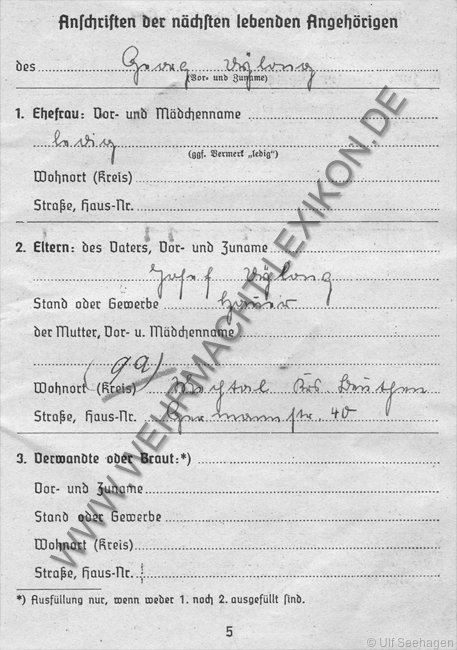 Anschriften der nächsten lebenden Angehörigen
des Georg
(Vor- und Zuname)
1. Ehefrau: Vor- und Mädchenname
ledig
(ggf. Vermerk „ledig")
Wohnort (Kreis)
Straße, Haus-Nr.
2. Eltern: des Vaters, Vor- und Zuname
Josef
Stand oder Gewerbe Häuer
der Mutter, Vor- u. Mädchenname
Wohnort (Kreis) Krs Beuthen
Straße, Haus-Nr. Germannstr. 40
3. Verwandte oder Braut:*)
Vor- und Zuname
Stand oder Gewerbe
Wohnort (Kreis)
Straße, Haus-Nr.
*) Ausfüllung nur, wenn weder 1. noch 2. ausgefüllt sind.
5
WWW.WEHRMACHT-LEXIKON.DE
© Ulf Seehagen